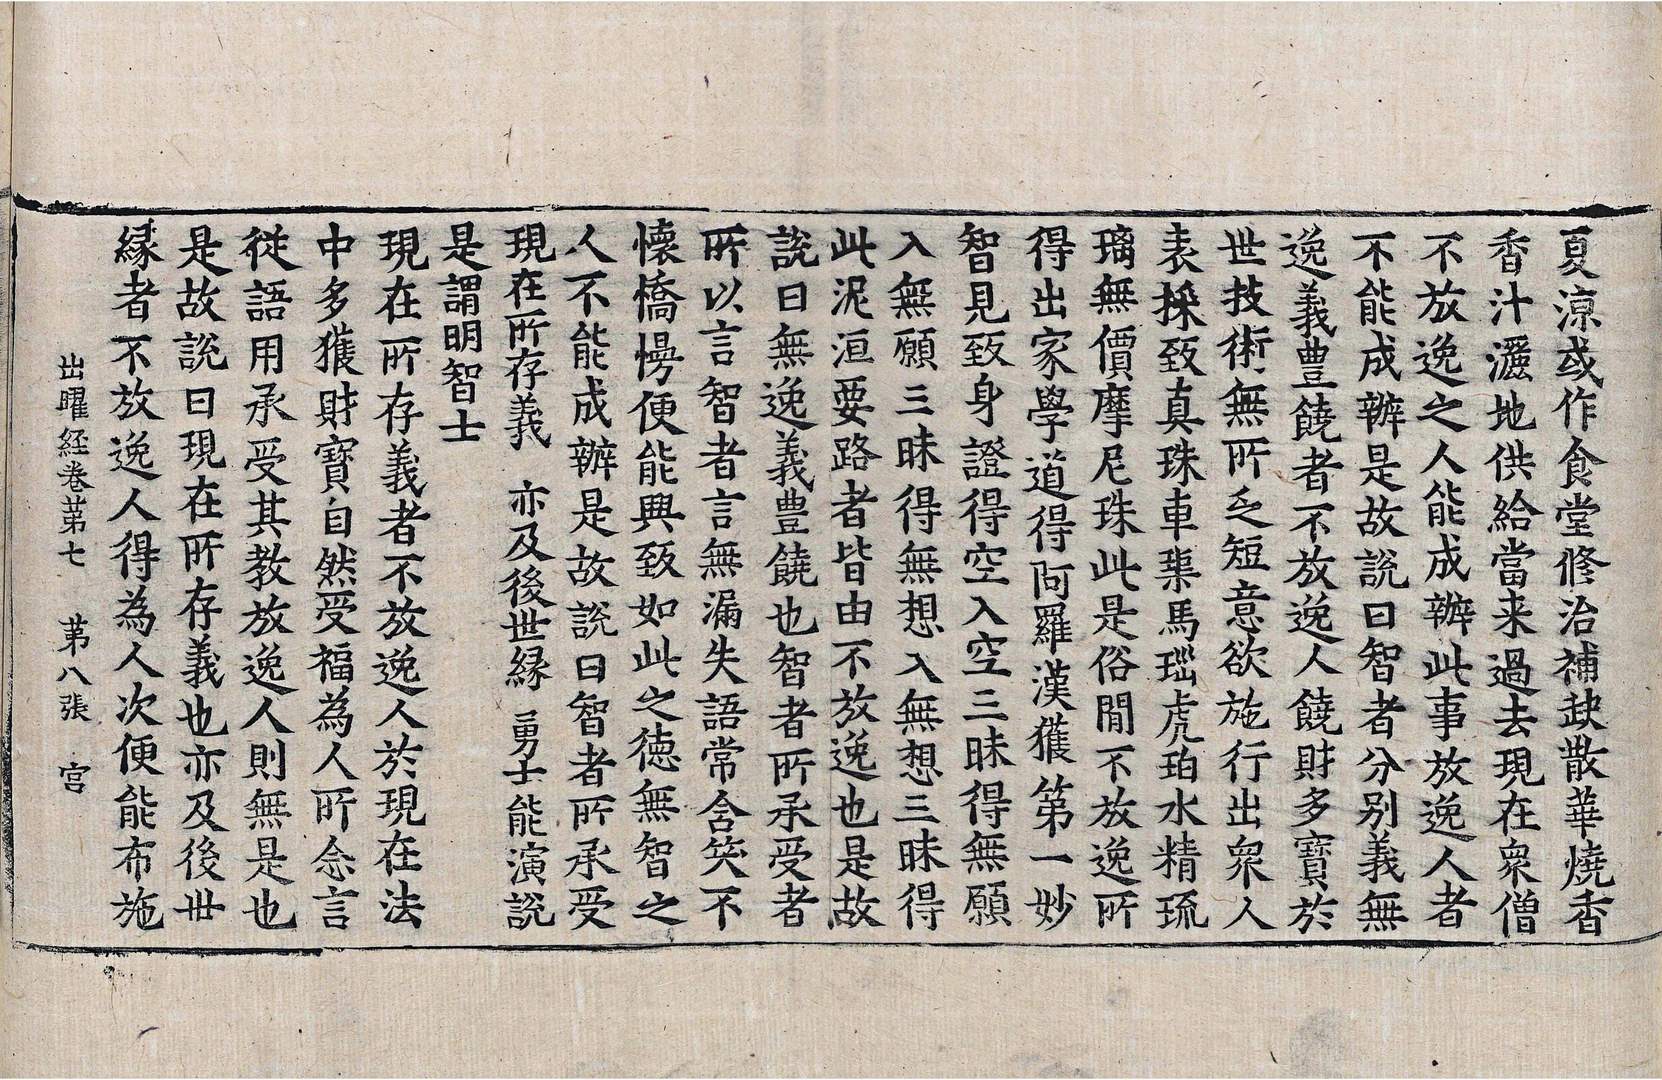 夏涼或作食堂修治補缺散華燒香
香汁灑地供給當来過去現在衆僧
不放逸之人能成辦此事放逸人者
不能成辦是故說曰智者分别義無
逸義豊饒者不放逸人饒財多寶於
世技術無所乏短意欲施行出衆人
表採致真珠車𤦲馬瑙虎珀水精琉
璃無價摩尼珠此是俗閒不放逸所
得出家學道得阿羅漢獲第一妙
智見致身證得空入空三昧得無願
入無願三昧得無想入無想三昧得
此泥洹要路者皆由不放逸也是故
說曰無逸義豊饒也智者所承受者
所以言智者言無漏失語常含笑不
懷憍慢便能興致如此之德無智之
人不能成辦是故說曰智者所承受
現在所存義　亦及後世緣　勇士能演說
是謂明智士
現在所存義者不放逸人於現在法
中多獲財寶自然受福為人所念言
從語用承受其教放逸人則無是也
是故說曰現在所存義也亦及後世
緣者不放逸人得為人次便能布施
出曜経卷苐七　苐八張　宫